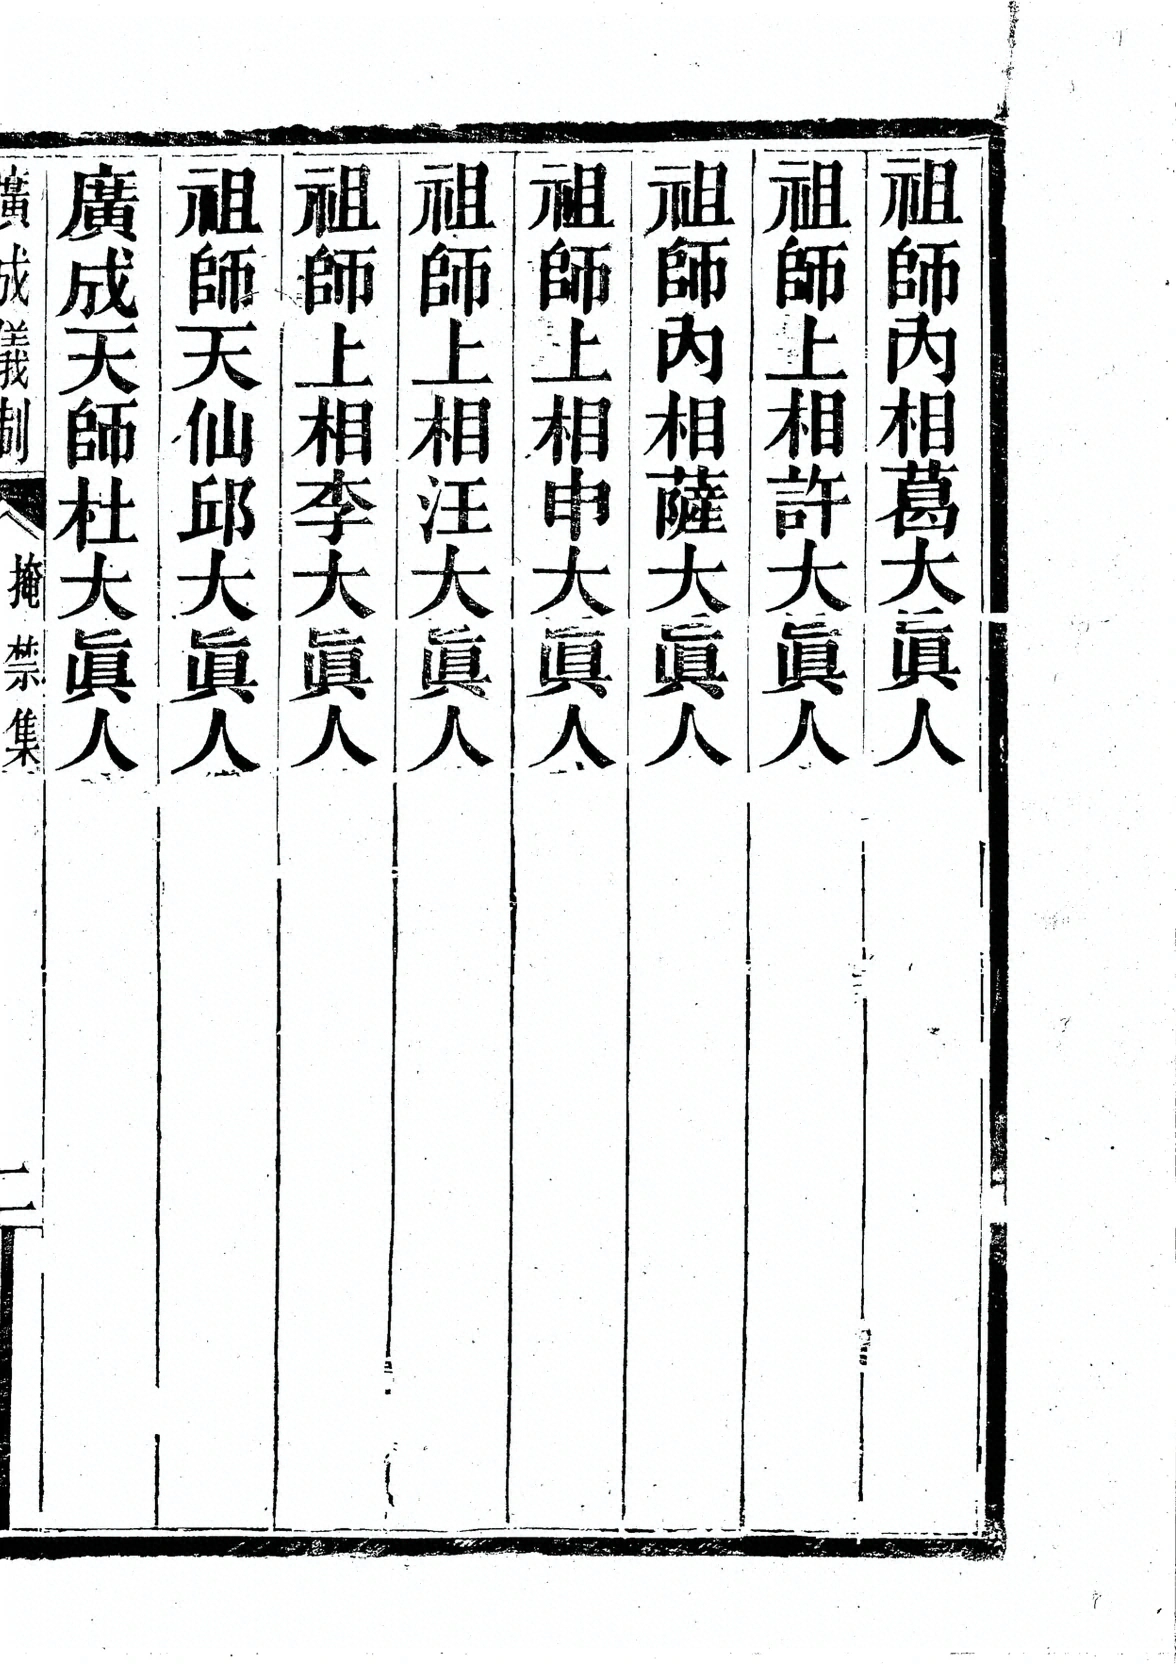 祖師內相葛大眞人
祖師上相許大眞人
祖師內相薩大眞人
祖師上相申大眞人
祖師上相汪大眞人
祖師上相李大眞人
祖師天仙邱大眞人
廣成天師杜大眞人
廣成儀制
掩禁集
二